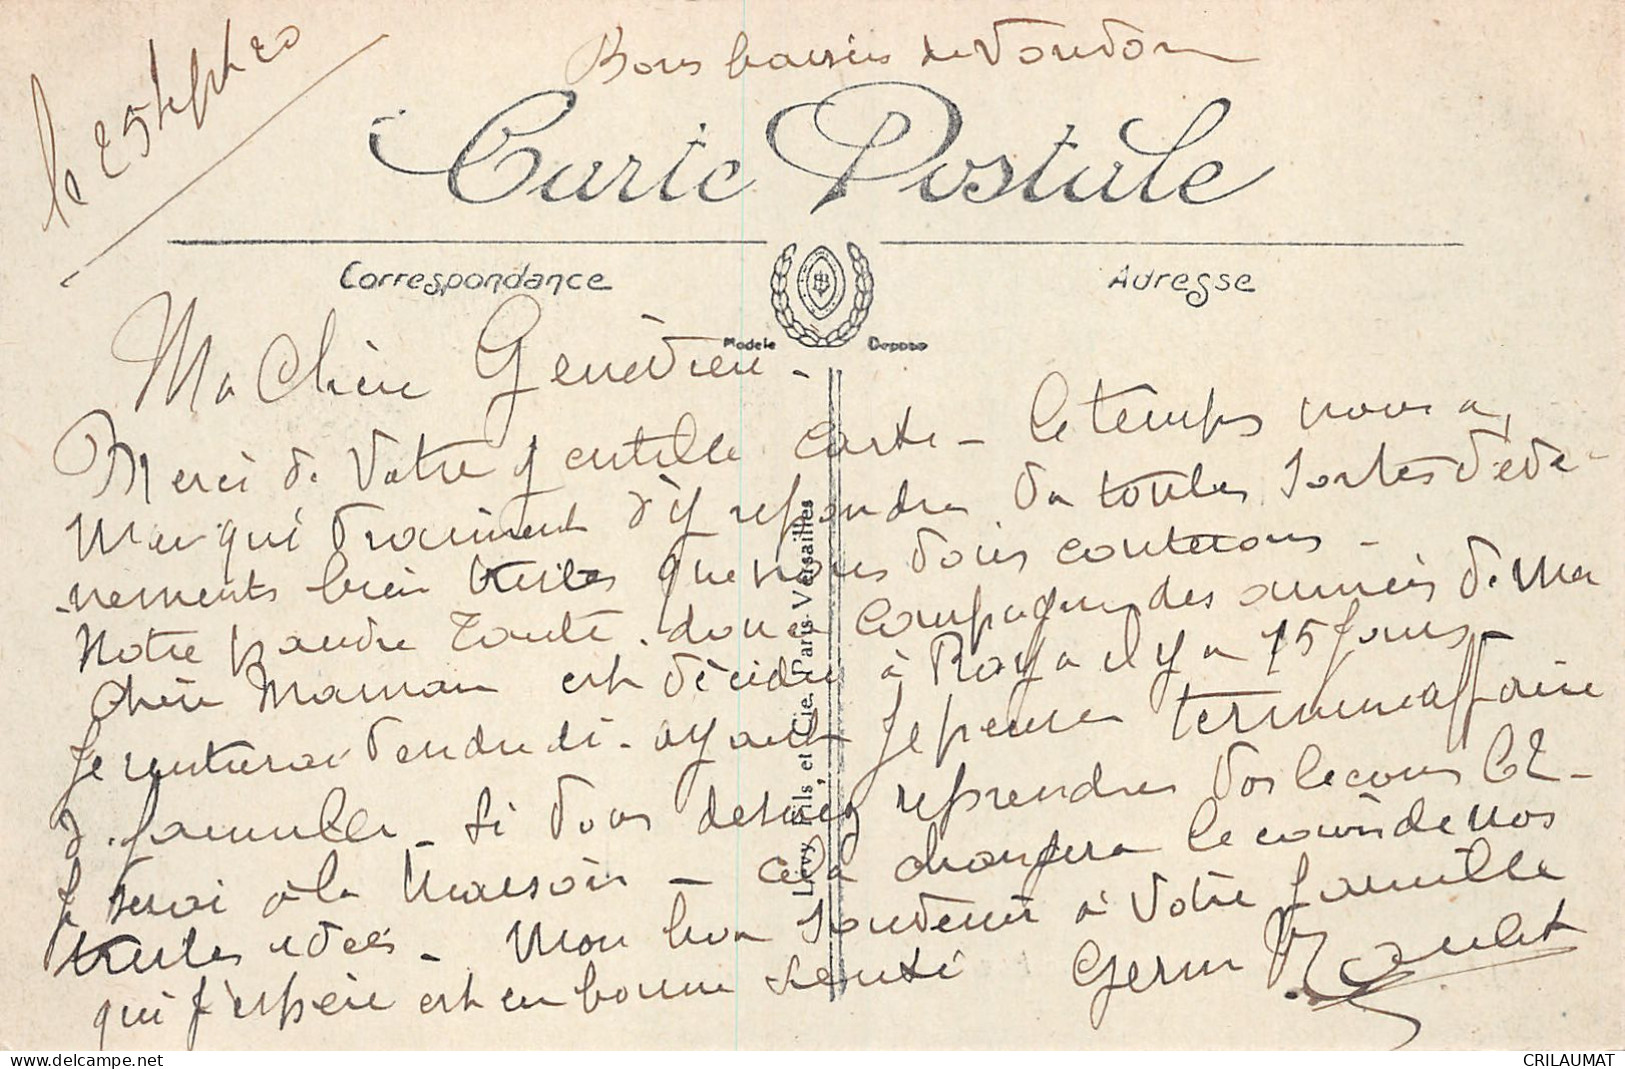 le 25 sept 20
Bons baisers de Doudon
Carte Postale
Correspondance
Adresse
Modele Depose
Ma Chère Geneviève -
Merci de votre gentille carte - le temps nous a
manqué vraiment d'y repondre de toutes sortes d'évé-
nements bien tristes que nous vous conterons -
Notre pauvre Tante, donc compagne des années de ma
Chère Maman est décidée à Royan il y a 15 jours
Je rentrerai vendredi - ayant je pense terminé affaire
d. famille - Si vous desirez reprendre vos lecons le 2 -
je serai à la maison - cela changera le cours de nos
tristes idées - Mon bon souvenir à votre famille
qui j'espère est en bonne santé Germ
Levy Fils, et Cie. Paris-Versailles
delcampe.net
CRILAUMAT